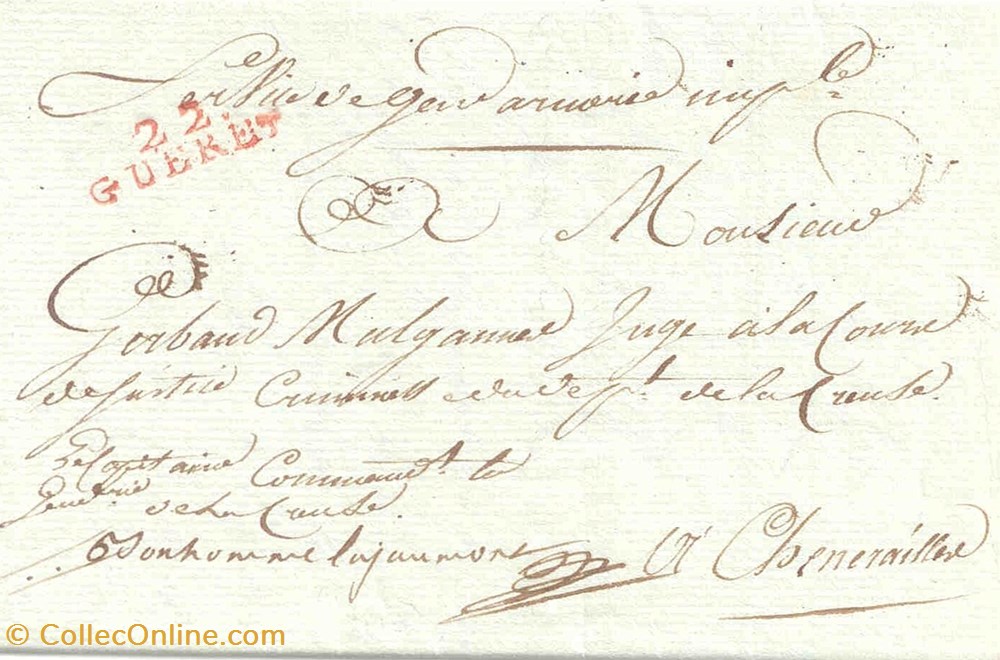 Service de gendarmerie imp.le
22
GUERET
A Monsieur
Gorbaud Malgannes Juge a la Cour
de justice Criminelle du Dep.t de la Creuse.
Le Capitaine Command.t la
Gend.rie de la Creuse.
Bonhomme lajaumont
A Cheneraillee
© CollecOnline.com